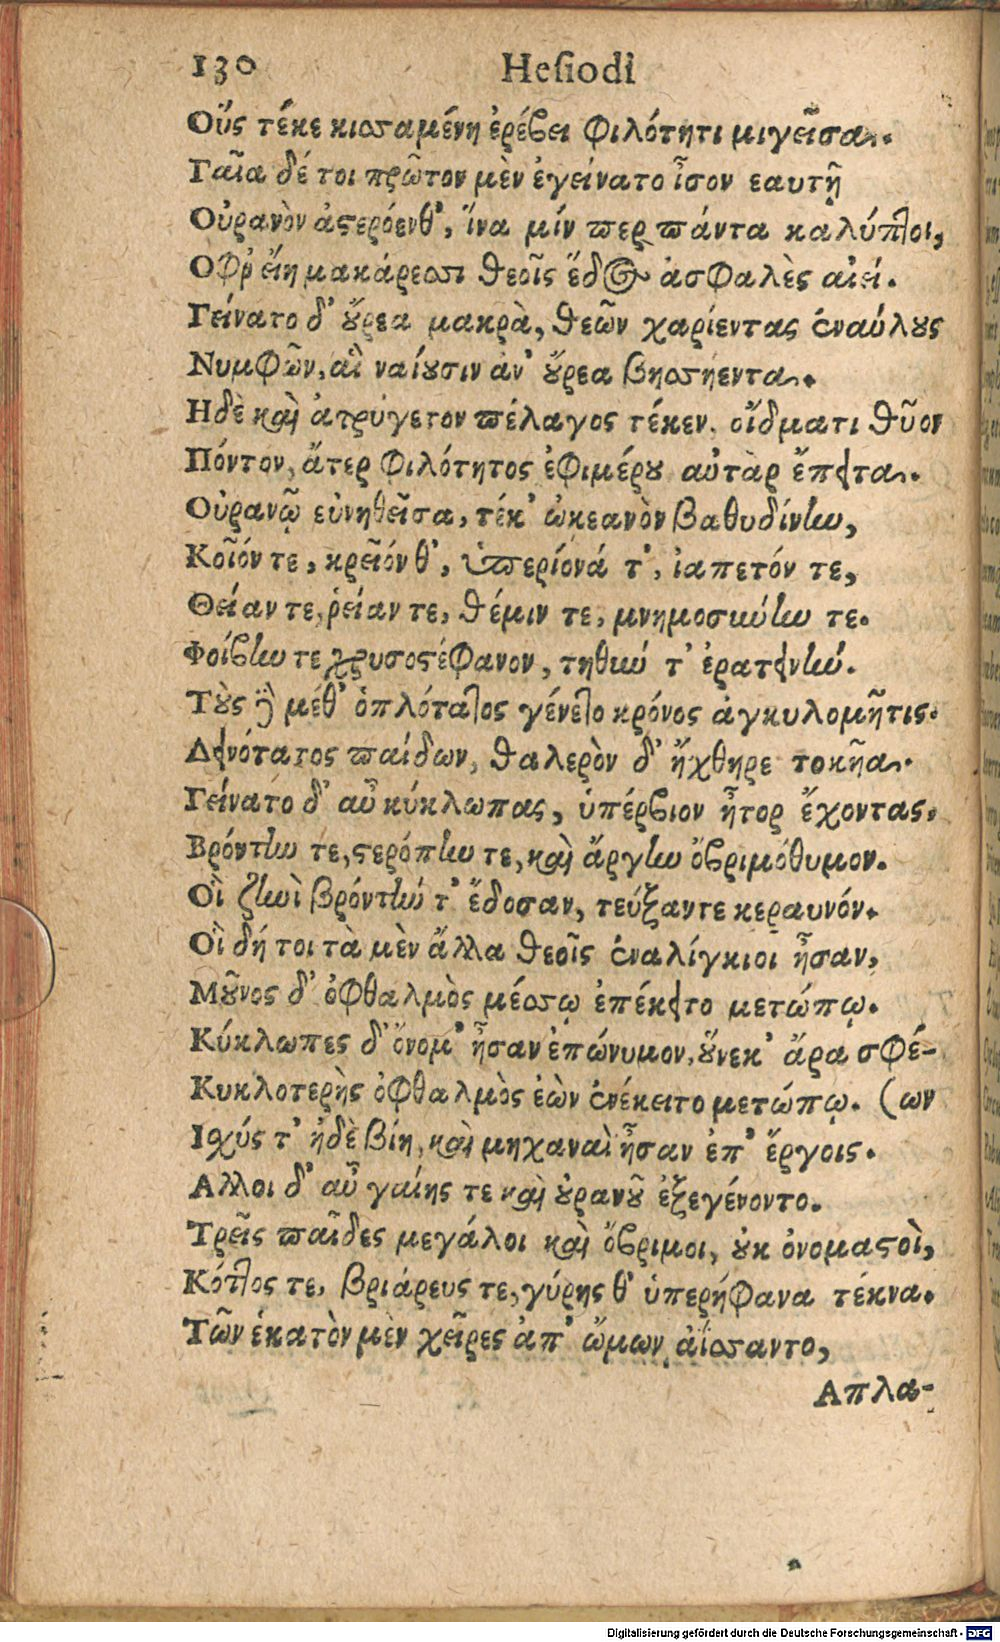 130 Hesiodi
Οὓς τέκε κιοσαμένη ἐρέβει φιλότητι μιγεῖσα.
Γαῖα δέ τοι πρῶτον μὲν ἐγείνατο ἶσον εαυτῇ
Οὐρανὸν ἀστερόενθ', ἵνα μίν περ πάντα καλύπτοι,
Οφρ' εἴη μακάρεσσι θεοῖς ἕδος ἀσφαλὲς αἰεί.
Γείνατο δ' οὔρεα μακρὰ, θεῶν χαρίεντας ἐναύλους
Νυμφῶν, αἳ ναίουσιν ἀν' οὔρεα βησσήεντα.
Ηδὲ καὶ ἀτρύγετον πέλαγος τέκεν. οἴδματι θῦον
Πόντον, ἄτερ φιλότητος ἐφιμέρου αὐτὰρ ἔπειτα.
Οὐρανῷ εὐνηθεῖσα, τέκ' ὠκεανὸν βαθυδίνην,
Κοῖόν τε, κρεῖόν θ', ὑπερίονά τ', ἰαπετόν τε,
Θείαν τε, ῥείαν τε, θέμιν τε, μνημοσύνην τε.
Φοίβην τε χρυσοστέφανον, τηθύν τ' ἐρατεινήν.
Τοὺς δὲ μέθ' ὁπλότατος γένετο κρόνος ἀγκυλομῆτις.
Δεινότατος παίδων, θαλερὸν δ' ἤχθηρε τοκῆα.
Γείνατο δ' αὖ κύκλωπας, ὑπέρβιον ἦτορ ἔχοντας.
Βρόντην τε, στερόπην τε, καὶ ἄργην ὀβριμόθυμον.
Οἳ ζηνὶ βρόντήν τ' ἔδοσαν, τεύξαντε κεραυνόν.
Οἳ δή τοι τὰ μὲν ἄλλα θεοῖς ἐναλίγκιοι ἦσαν,
Μοῦνος δ' ὀφθαλμὸς μέσσῳ ἐπέκειτο μετώπῳ.
Κύκλωπες δ' ὄνομ' ἦσαν ἐπώνυμον, οὕνεκ' ἄρα σφέ-
Κυκλοτερὴς ὀφθαλμὸς ἑὼν ἐνέκειτο μετώπῳ. (ων
Ισχύς τ' ἠδὲ βίη, καὶ μηχαναὶ ἦσαν ἐπ' ἔργοις.
Αλλοι δ' αὖ γαίης τε καὶ οὐρανοῦ ἐξεγένοντο.
Τρεῖς παῖδες μεγάλοι καὶ ὄβριμοι, οὐκ ὀνομαστοὶ,
Κόττος τε, βριάρευς τε, γύρης θ' ὑπερήφανα τέκνα.
Τῶν ἑκατὸν μὲν χεῖρες ἀπ' ὤμων ἀΐσσαντο,
Απλα-
Digitalisierung gefördert durch die Deutsche Forschungsgemeinschaft - DFG